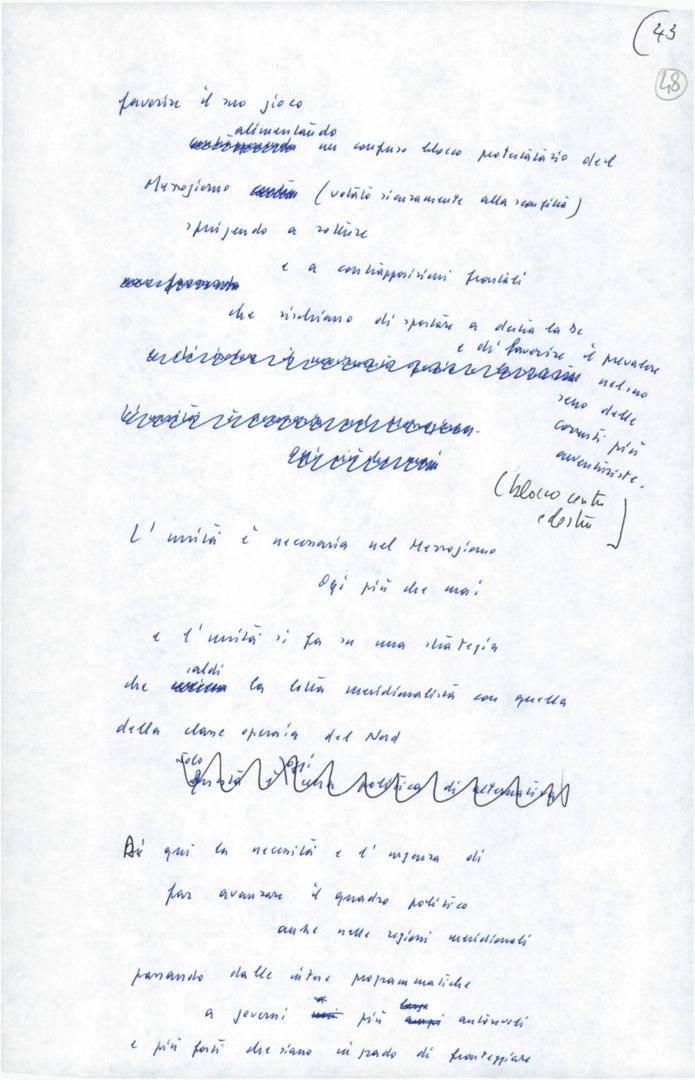 (43
48
favorire il suo gioco
alimentando
un confuso blocco protestatario del
Mezzogiorno (votato sicuramente alla sconfitta)
spingendo a rotture
e a contrapposizioni frontali
che rischiano di spostare a destra la DC
e di favorire il prevalere
nel suo
seno delle
correnti più
avventuriste.
(blocco centro
e destra]
L'unità è necessaria nel Mezzogiorno
Oggi più che mai
e l'unità si fa su una strategia
saldi
che la lotta meridionalista con quella
della classe operaia del Nord
solo oggi
questa è una politica di alternativa
Di qui la necessità e l'urgenza di
far avanzare il quadro politico
anche nelle regioni meridionali
passando dalle intese programmatiche
a governi più autorevoli
e più forti che siano in grado di fronteggiare